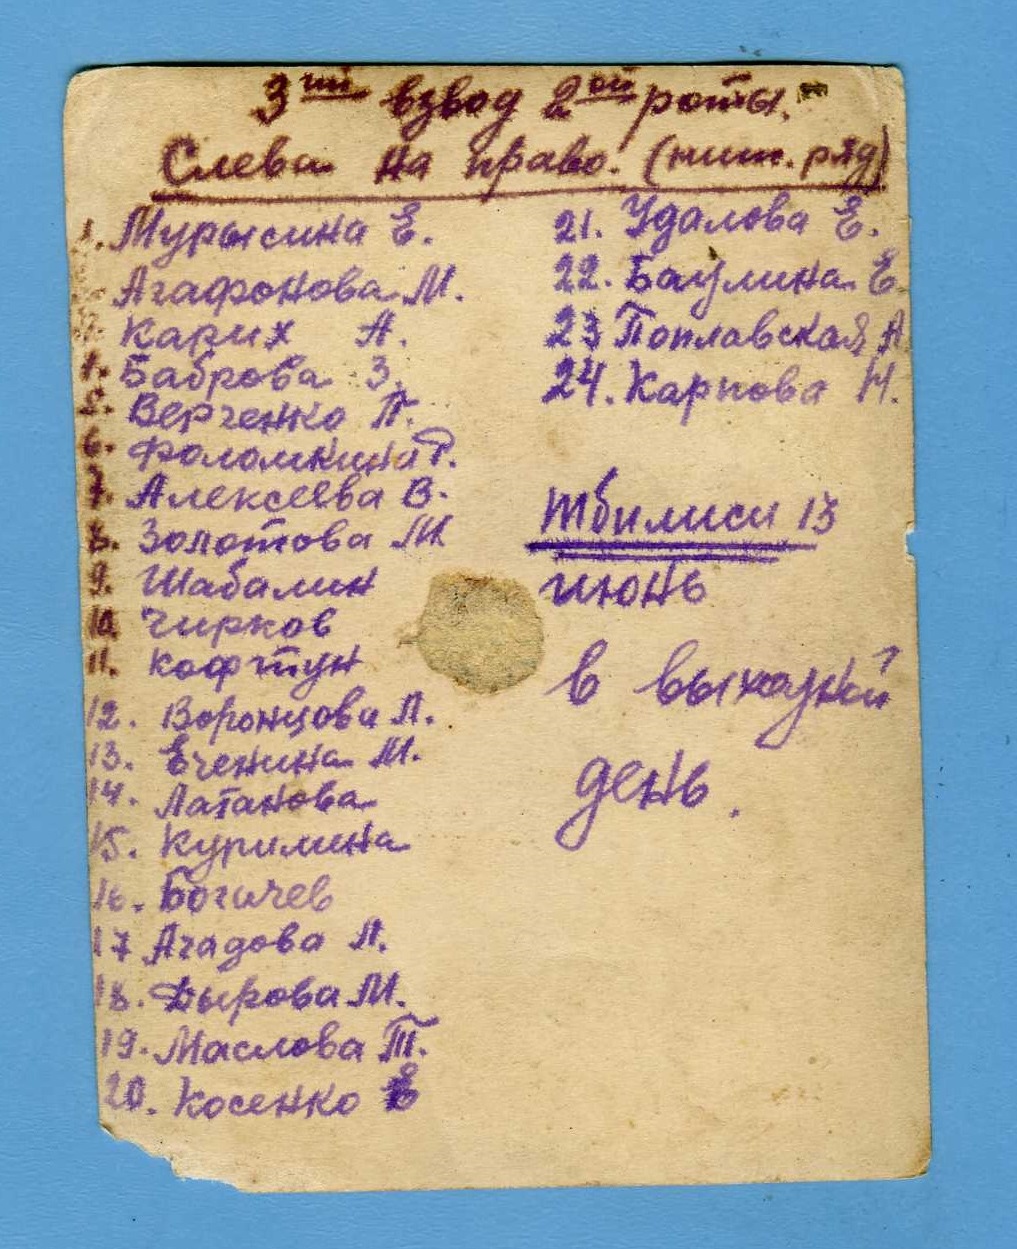 3ий взвод 2ой роты.
Слева на право. (нижн. ряд)
1. Мурысина Е.
Агафонова М.
3. Карих А.
4. Баброва З.
5. Верченко П.
6. Фоломкина Р.
7. Алексеева В.
8. Золотова М.
9. Шабалин
10. Чирков
11. Кофтун
12. Воронцова Л.
13. Еченина М.
14. Латанова
15. Курилина
16. Богичев
17 Агадова Л.
18. Дырова М.
19. Маслова Т.
20. Косенко Е
21. Удалова Е.
22. Баулина Е.
23 Поплавская А
24. Карпова Н.
Тбилиси 13
июнь
в выходной
день.